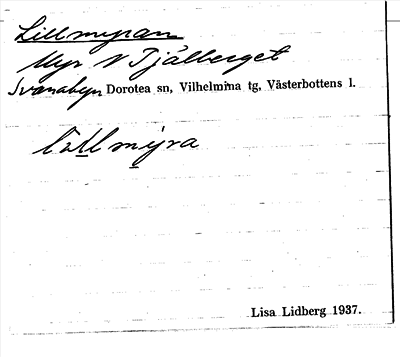 Lillmyran
Myr N Tjälberget
Svanabyn Dorotea sn, Vilhelmina tg, Västerbottens l.
myra
Lisa Lidberg 1937.